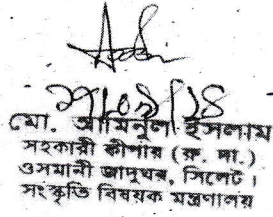 ২৭/০৯/১৪
মো. আমিনুল ইসলাম
সহকারী কীপার (রু. দা.)
ওসমানী জাদুঘর, সিলেট।
সংস্কৃতি বিষয়ক মন্ত্রণালয়